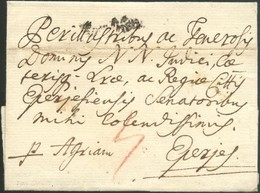 Perillustribus ac Generosis
Dominis N N Judici, Cæ
teris Lræ, ac Regiæ Cittis
Eperjesiensis Senatoribus
mihi Colendissimis
Eperjes